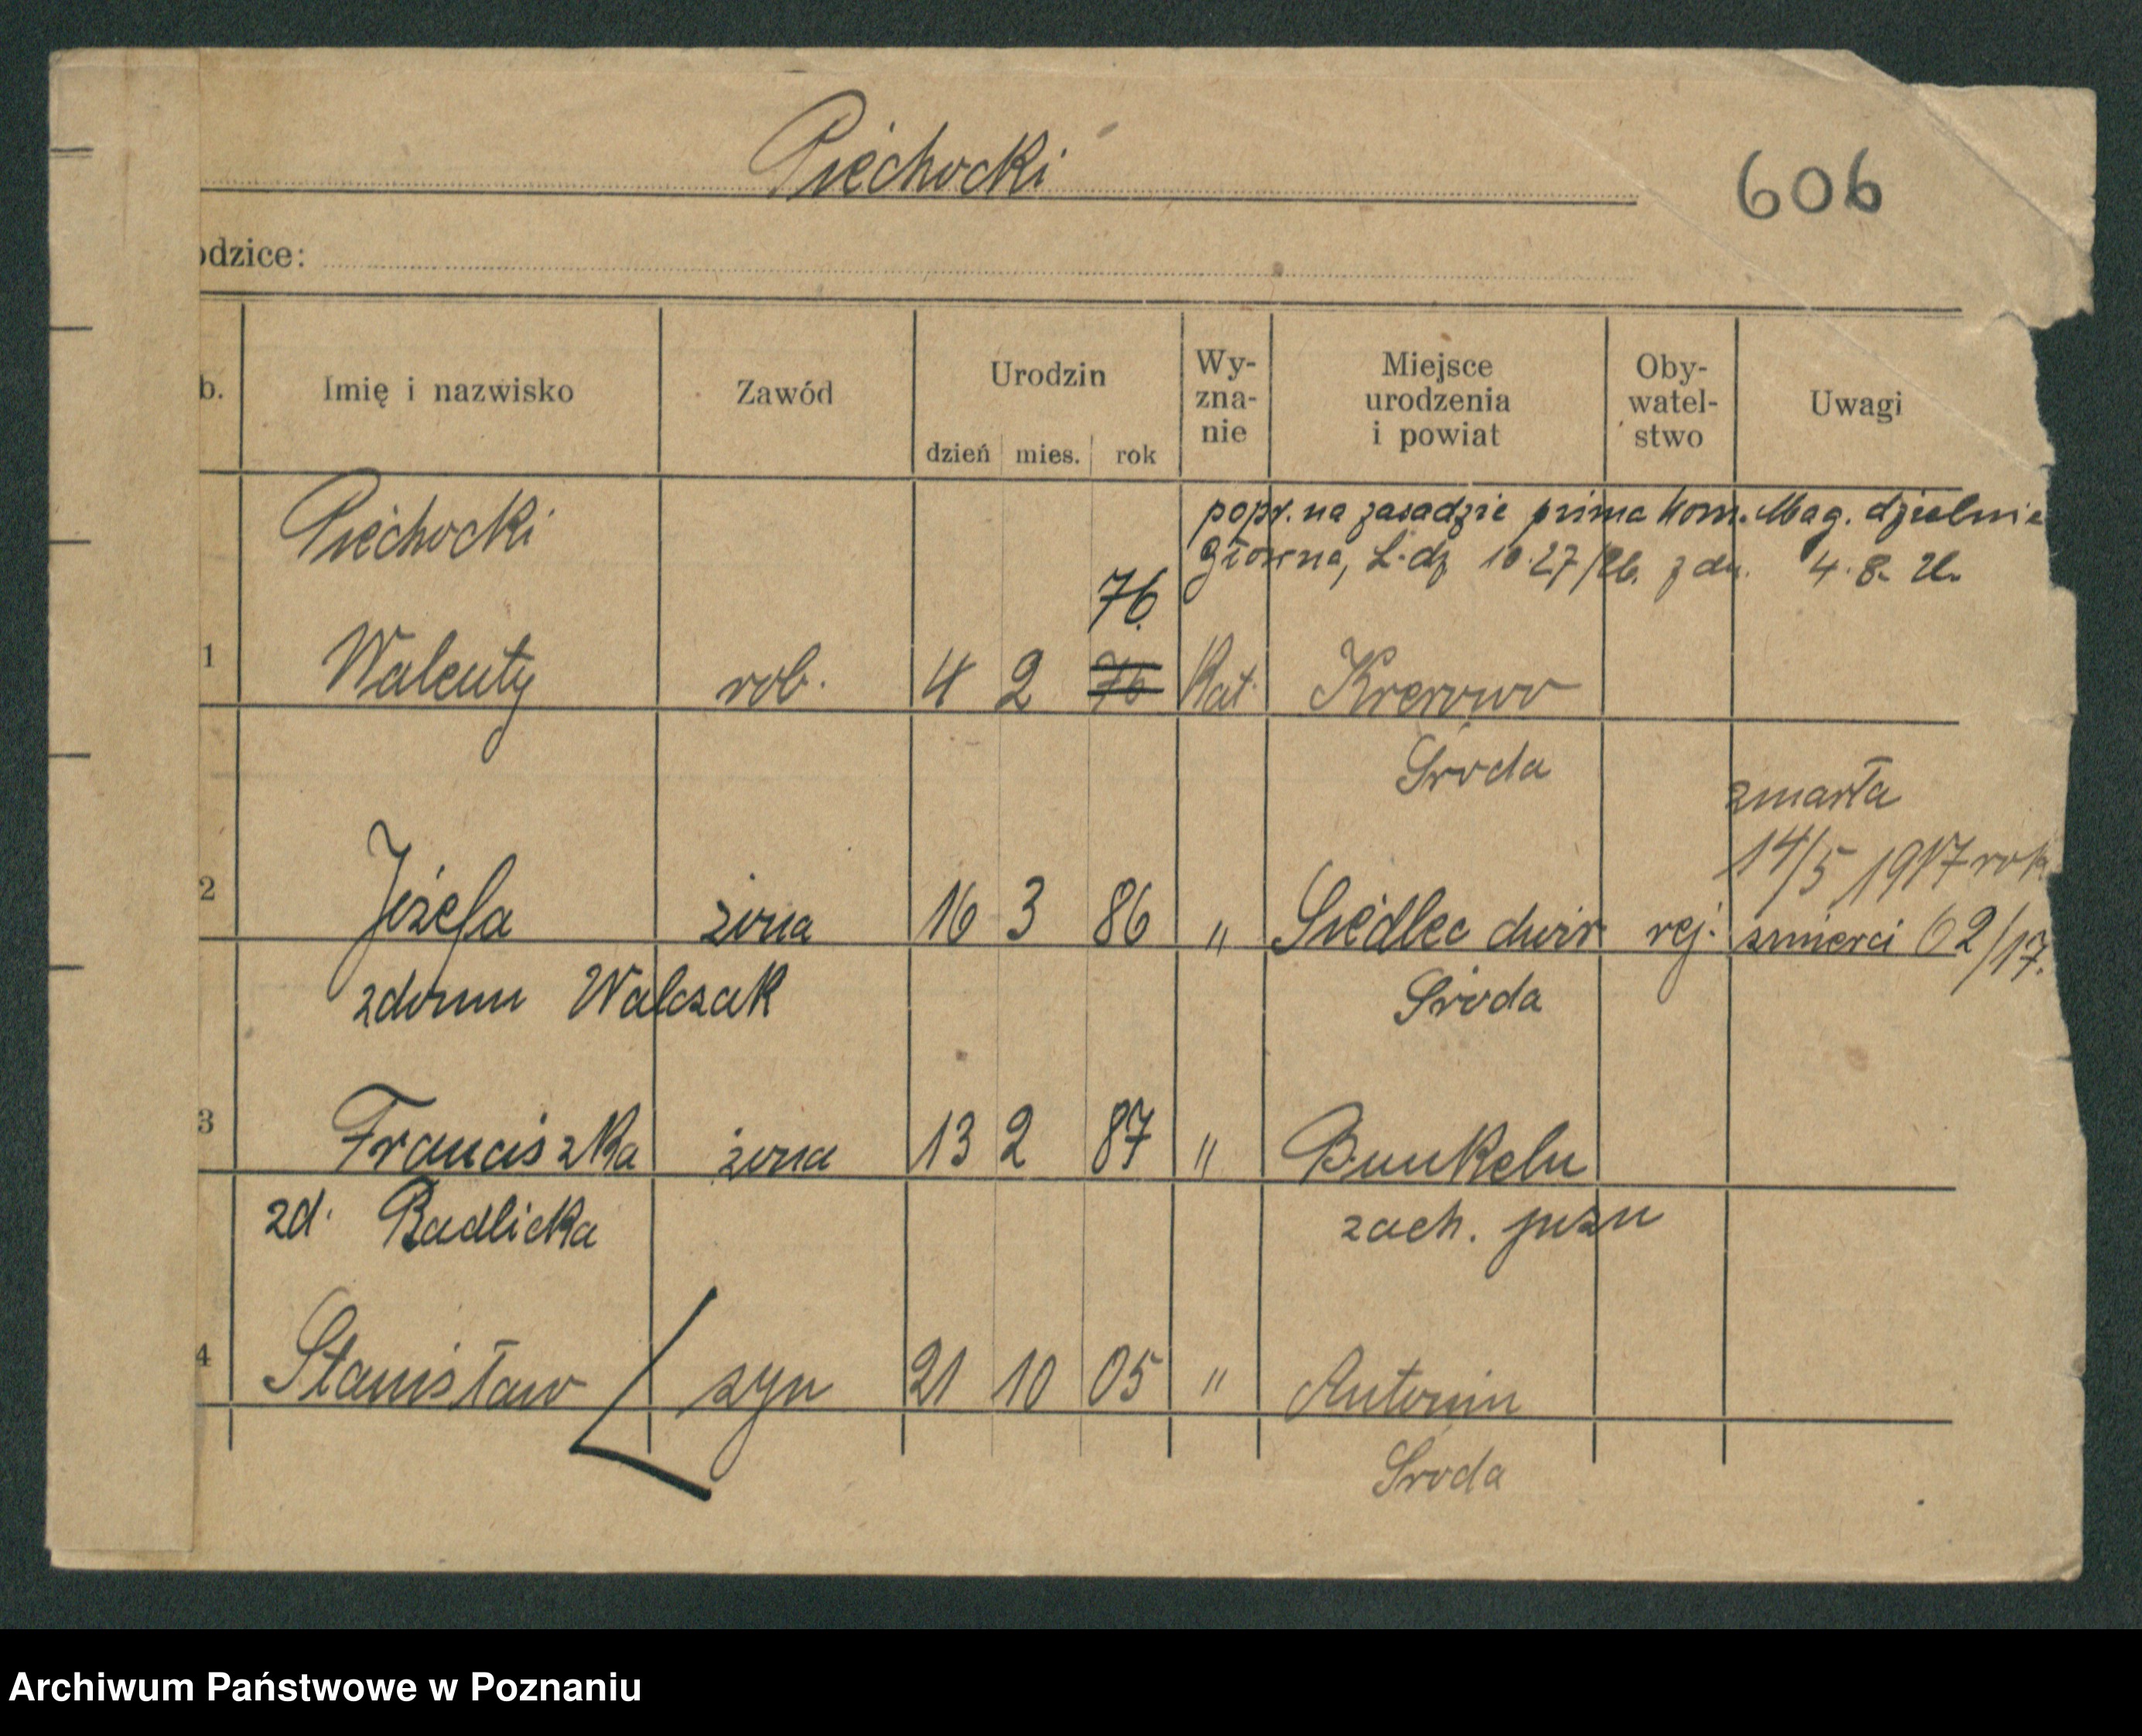 Piechocki
606
odzice:
b. Imię i nazwisko Zawód Urodzin dzień mies. rok Wy-zna-nie Miejsce urodzenia i powiat Oby-watel-stwo Uwagi
Piechocki popr. na zasadzie pisma Kom. Mag. dzielnic
Główna, L.dz 10.27/26. z dn. 4.8.26.
76.
1 Walenty rob. 4 2 76 Kat. Krerowo
Środa
zmarła
14/5 1917 rok
2 Józefa żona 16 3 86 " Siedlec dwór rej. śmierci 62/17.
zdomu Walczak Środa
3 Franciszka żona 13 2 87 "
zd. Radlicka zach.
4 Stanisław syn 21 10 05 " Antonin
Środa
Archiwum Państwowe w Poznaniu